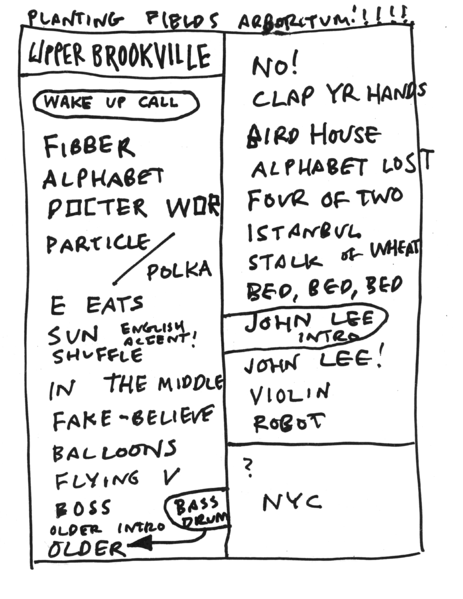 PLANTING FIELDS ARBORITUM!!!!!
UPPER BROOKVILLE
WAKE UP CALL
FIBBER
ALPHABET
DOCTER WOR
PARTICLE
POLKA
E EATS
SUN ENGLISH ACCENT!
SHUFFLE
IN THE MIDDLE
FAKE-BELIEVE
BALLOONS
FLYING V
BOSS
OLDER INTRO
BASS
DRUM
OLDER
NO!
CLAP YR HANDS
BIRD HOUSE
ALPHABET LOST
FOUR OF TWO
ISTANBUL
STALK OF WHEAT
BED, BED, BED
JOHN LEE
INTRO
JOHN LEE!
VIOLIN
ROBOT
?
NYC